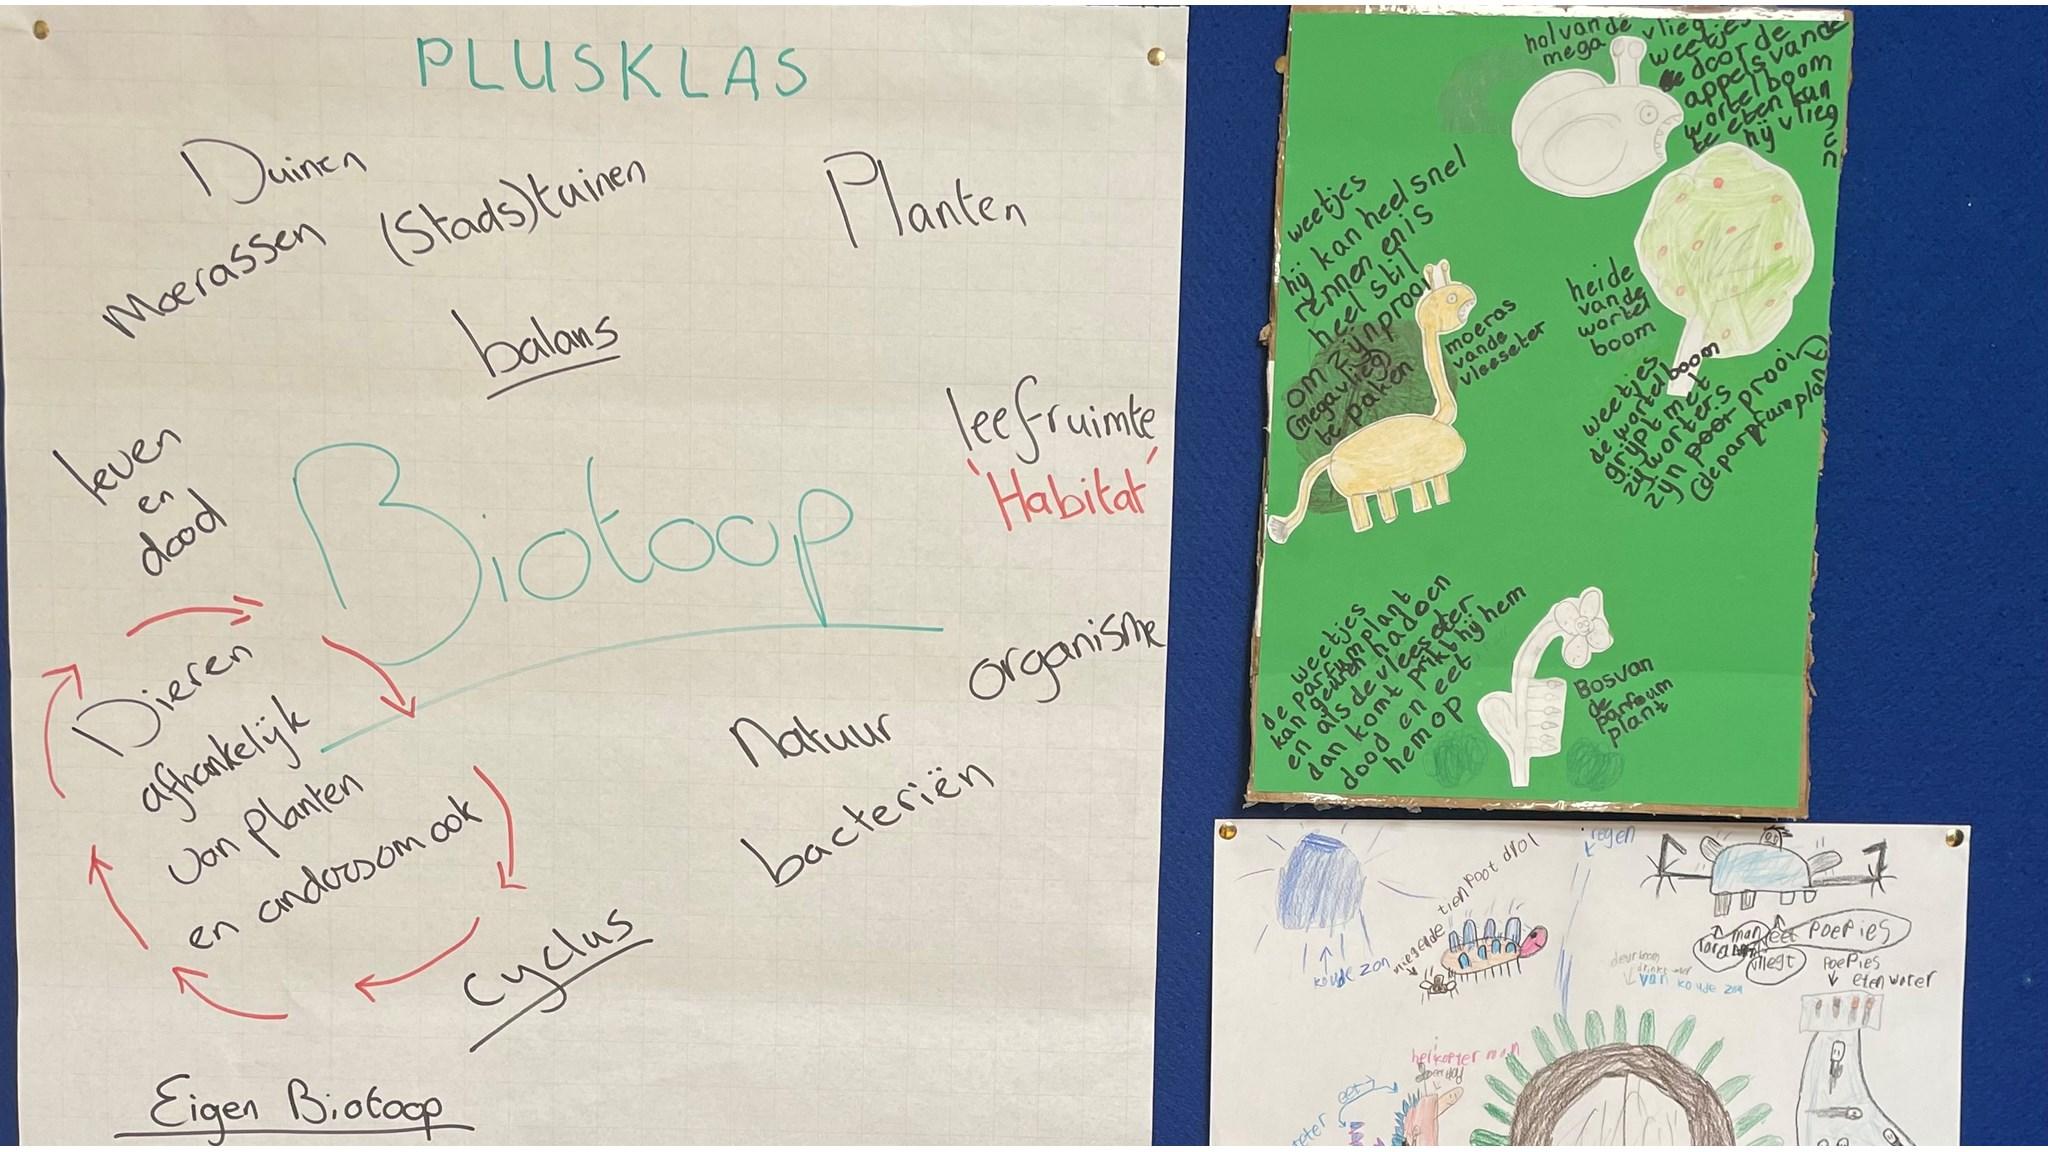 PLUSKLAS
Duinen
Moerassen
(Stads)tuinen
Planten
balans
leefruimte
'Habitat'
leven
en
dood
Biotoop
organisme
Dieren
afhankelijk
van planten
en andersom ook
Natuur
bacteriën
Cyclus
Eigen Biotoop
hol van de
mega vlieg
weetjes
door de
appels van de
wortelboom
te eten kan
hij vliegen
weetjes
hij kan heel snel
rennen en is
heel stil
om zijn prooi
(megavlieg)
te paken
moeras
van de
vleeseter
heide
van de
wortel
boom
weetjes
de wortelboom
grijpt met
zij worters
zijn poor prooi
(de parpfumplant)
weetjes
de parfumplant
kan geuren nadoen
en als de vleeseter
dan komt prikt hij hem
dood en eet
hem op
Bos van
de
parfoum
plant
koude zon
vliegende
tien poot drol
regen
man
eet poepies
vliegt
poepies
eten water
deurboom
drinkt
van koude zon
helikopter man
eet